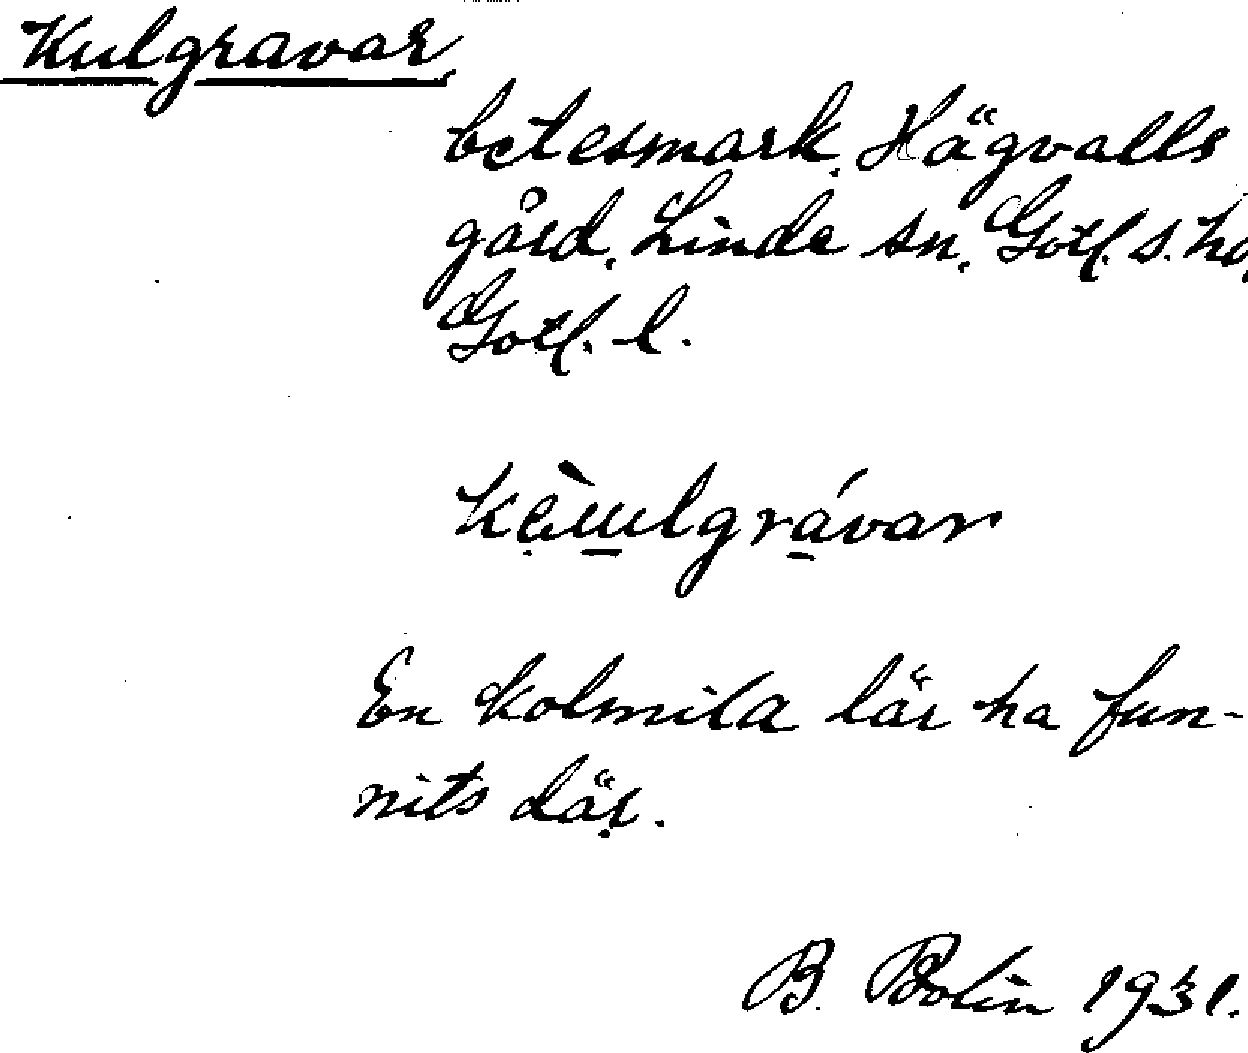 Kulgravar
betesmark, Hägvalls
gård, Linde sn, Gotl. s. hd,
Gotl. l.
En kolmila lär ha fun-
nits där.
B. Bolin 1931.